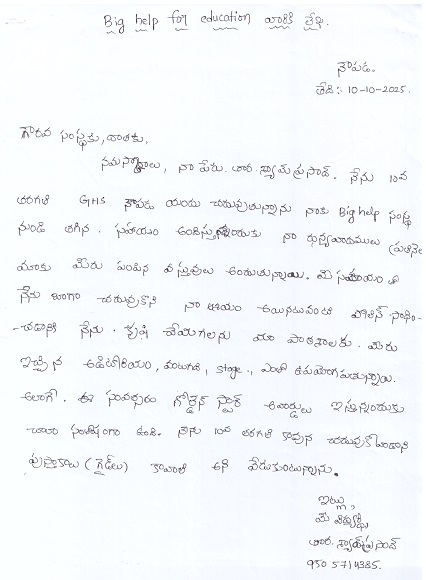 Big help for education వారికి లేఖ.
నౌపడ.
తేది:- 10-10-2025.
గౌరవ సంస్థకు, దాతకు,
నమస్కారాలు, నా పేరు. ఆర్. శ్యామ్ ప్రసాద్. నేను 10వ
తరగతి GHS నౌపడ యందు చదువుతున్నాను నాకు Big help సంస్థ
నుండి తగిన. సహాయం అందిస్తున్నందుకు నా ధన్యవాదములు ప్రతినెల
మాకు మీరు పంపిన వస్తువులు అందుతున్నాయి. మీ సహాయంతో
నేను బాగా చదువుకొని నా ఆశయం అయినటువంటి పోలీస్ సాధిం-
-చడానికి నేను. కృషి చేయగలను మా పాఠశాలకు. మీరు
ఇచ్చిన ఆడిటోరియం, వంటగది, stage., ఎంతో ఉపయోగపడుతున్నాయి.
అలాగే. ఈ సంవత్సరం గోల్డెన్ స్పార్క్ అవార్డులు ఇస్తున్నందుకు
చాలా సంతోషంగా ఉంది. నేను 10వ తరగతి కావున చదువుకోవడానికి
పుస్తకాలు (గైడ్‌లు) కావాలి అని వేడుకుంటున్నాను.
ఇట్లు,
మీ విద్యార్థి
ఆర్. శ్యామ్ ప్రసాద్
950 5714385.